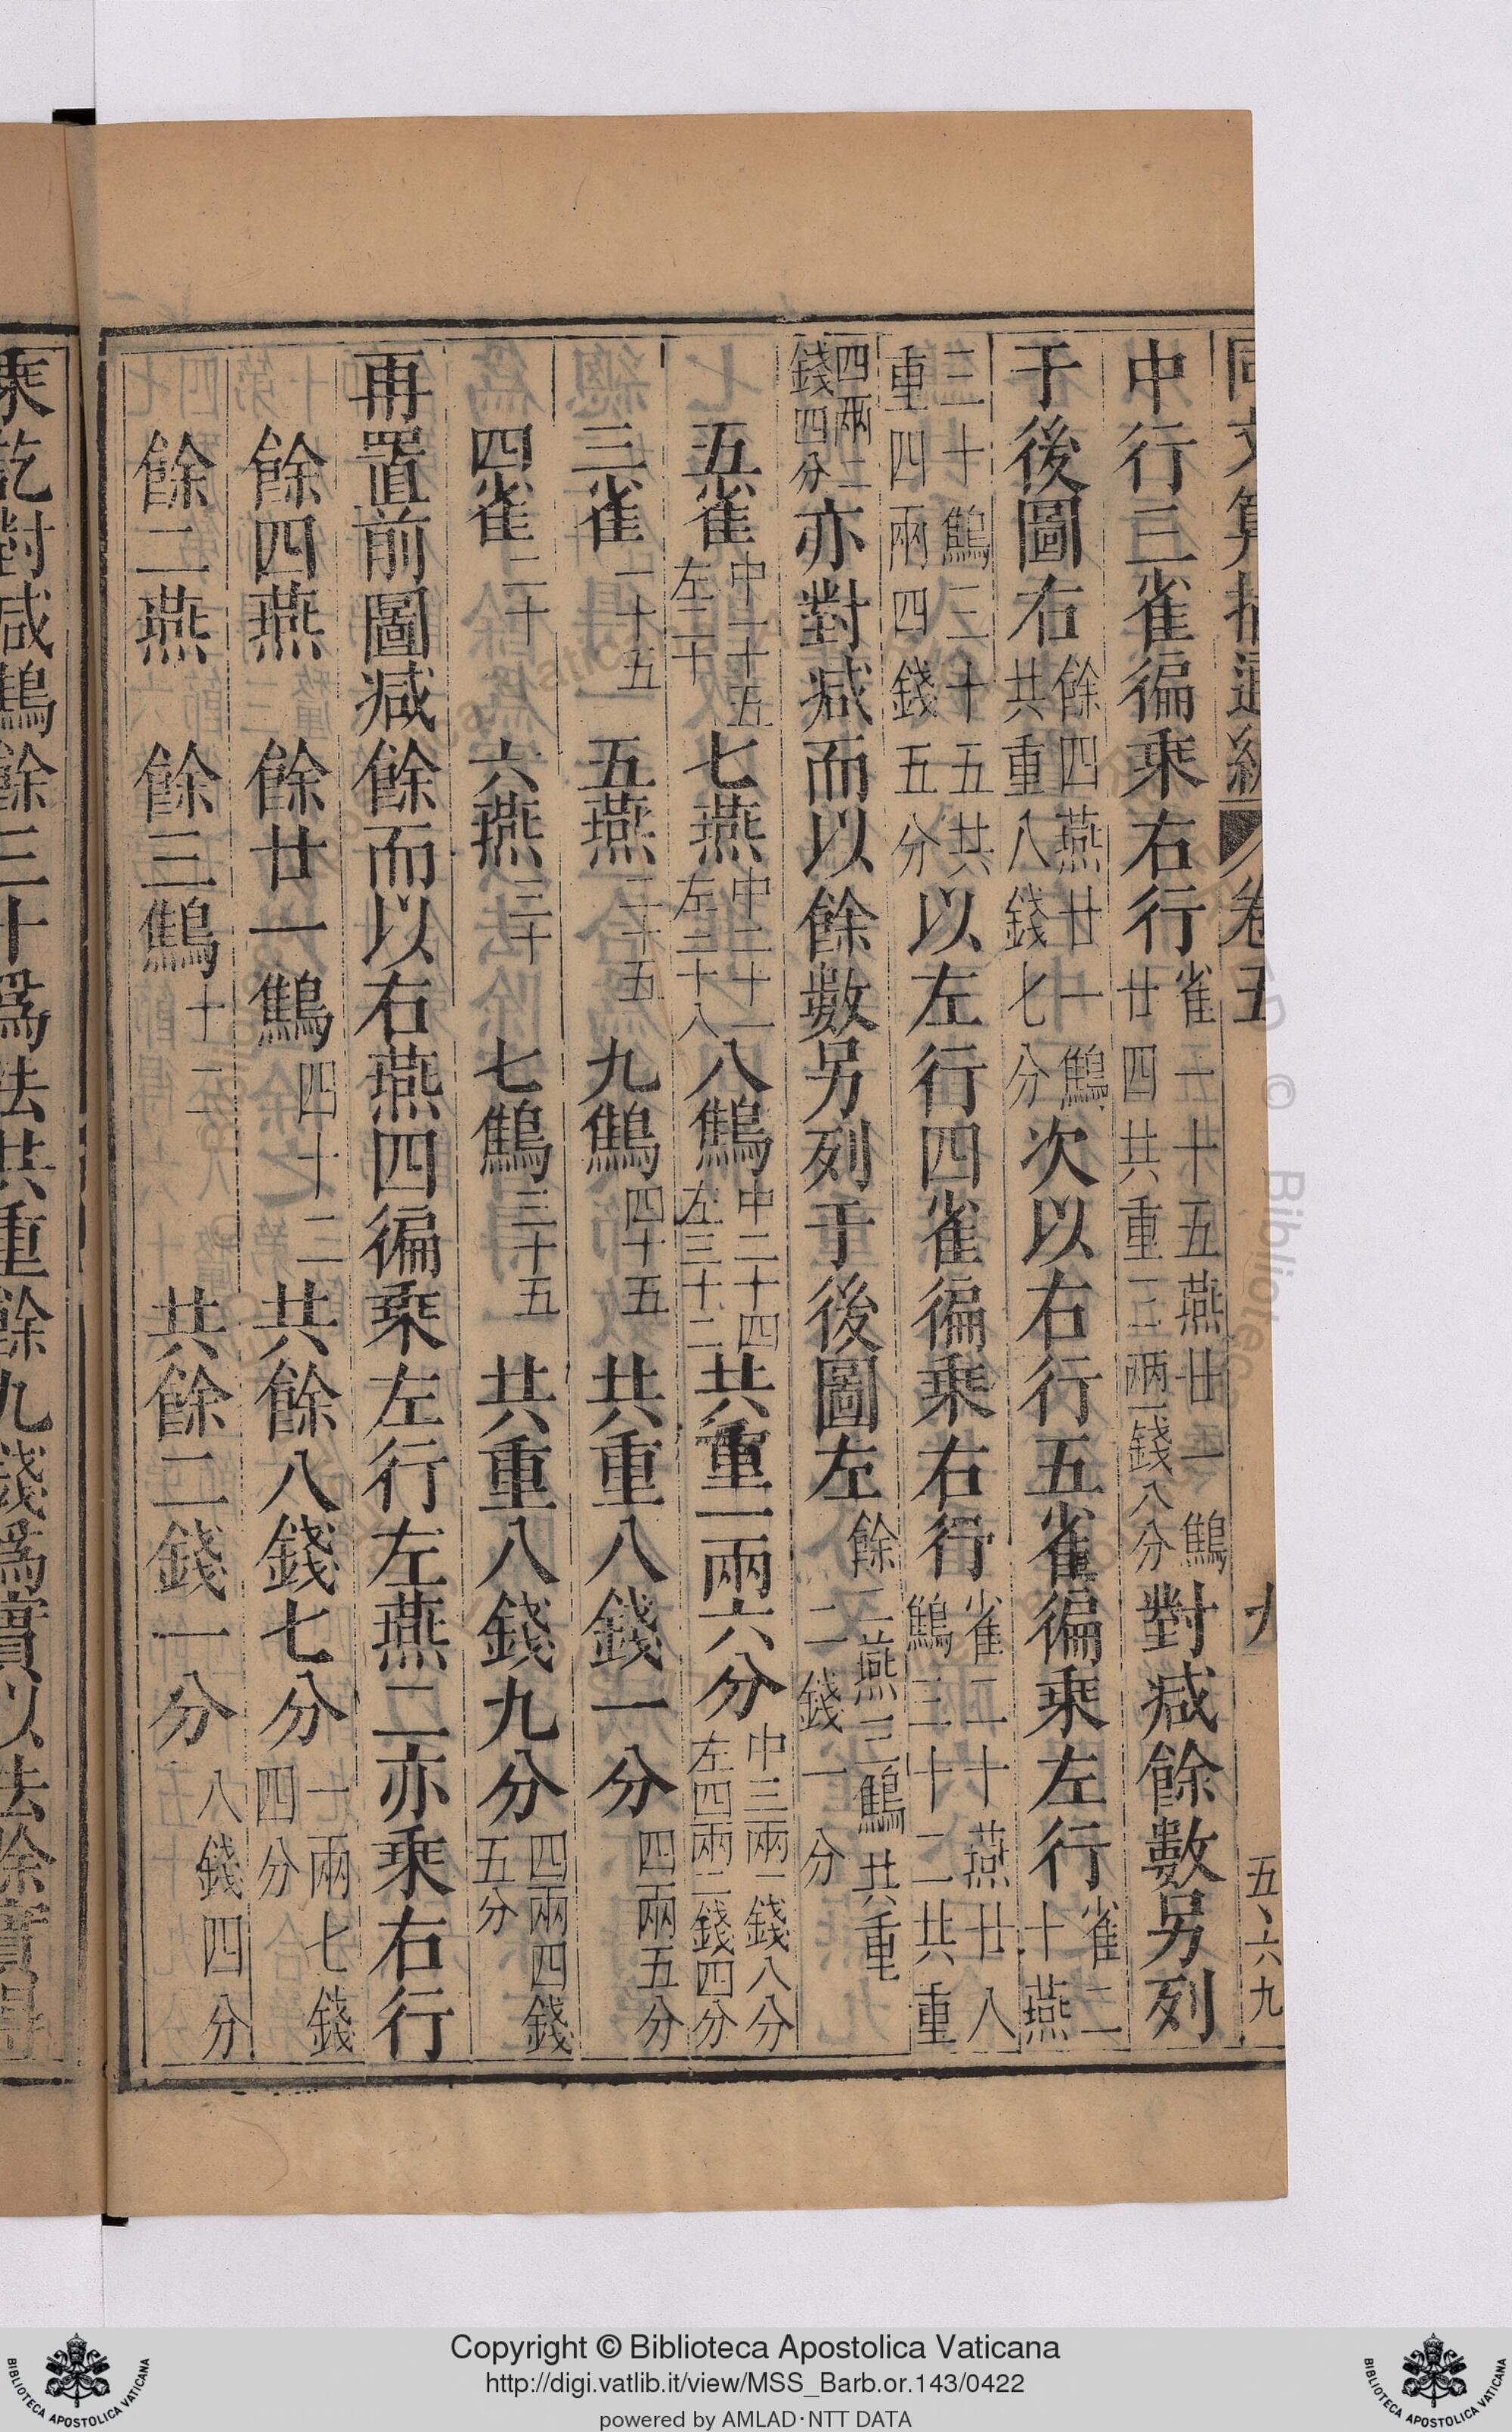 同文算指通編 卷五 九 五、六九
中行三雀徧乘右行雀一十五燕廿一鷦廿四共重三兩一錢八分對減餘數另列
于後圖右餘四燕廿一鷦共重八錢七分次以右行五雀徧乘左行雀二十燕
三十鷦三十五共重四兩四錢五分以左行四雀徧乘右行雀二十燕廿八鷦三十二共重
四兩二錢四分亦對減而以餘數另列于後圖左餘二燕三鷦共重二錢一分
五雀中一十五左二十 七燕中二十一左二十八 八鷦中二十四左三十二 共重一兩六分中三兩一錢八分左四兩二錢四分
三雀一十五 五燕二十五 九鷦四十五 共重八錢一分四兩五分
四雀二十 六燕三十 七鷦三十五 共重八錢九分四兩四錢五分
再置前圖減餘而以右燕四徧乘左行左燕二亦乘右行
餘四燕 餘廿一鷦四十二 共餘八錢七分一兩七錢四分
餘二燕 餘三鷦十二 共餘二錢一分八錢四分
乘訖對減鷦餘三十爲法共重餘九錢爲實以法除實得
Copyright © Biblioteca Apostolica Vaticana
http://digi.vatlib.it/view/MSS_Barb.or.143/0422
powered by AMLAD·NTT DATA
BIBLIOTECA APOSTOLICA VATICANA
BIBLIOTECA APOSTOLICA VATICANA